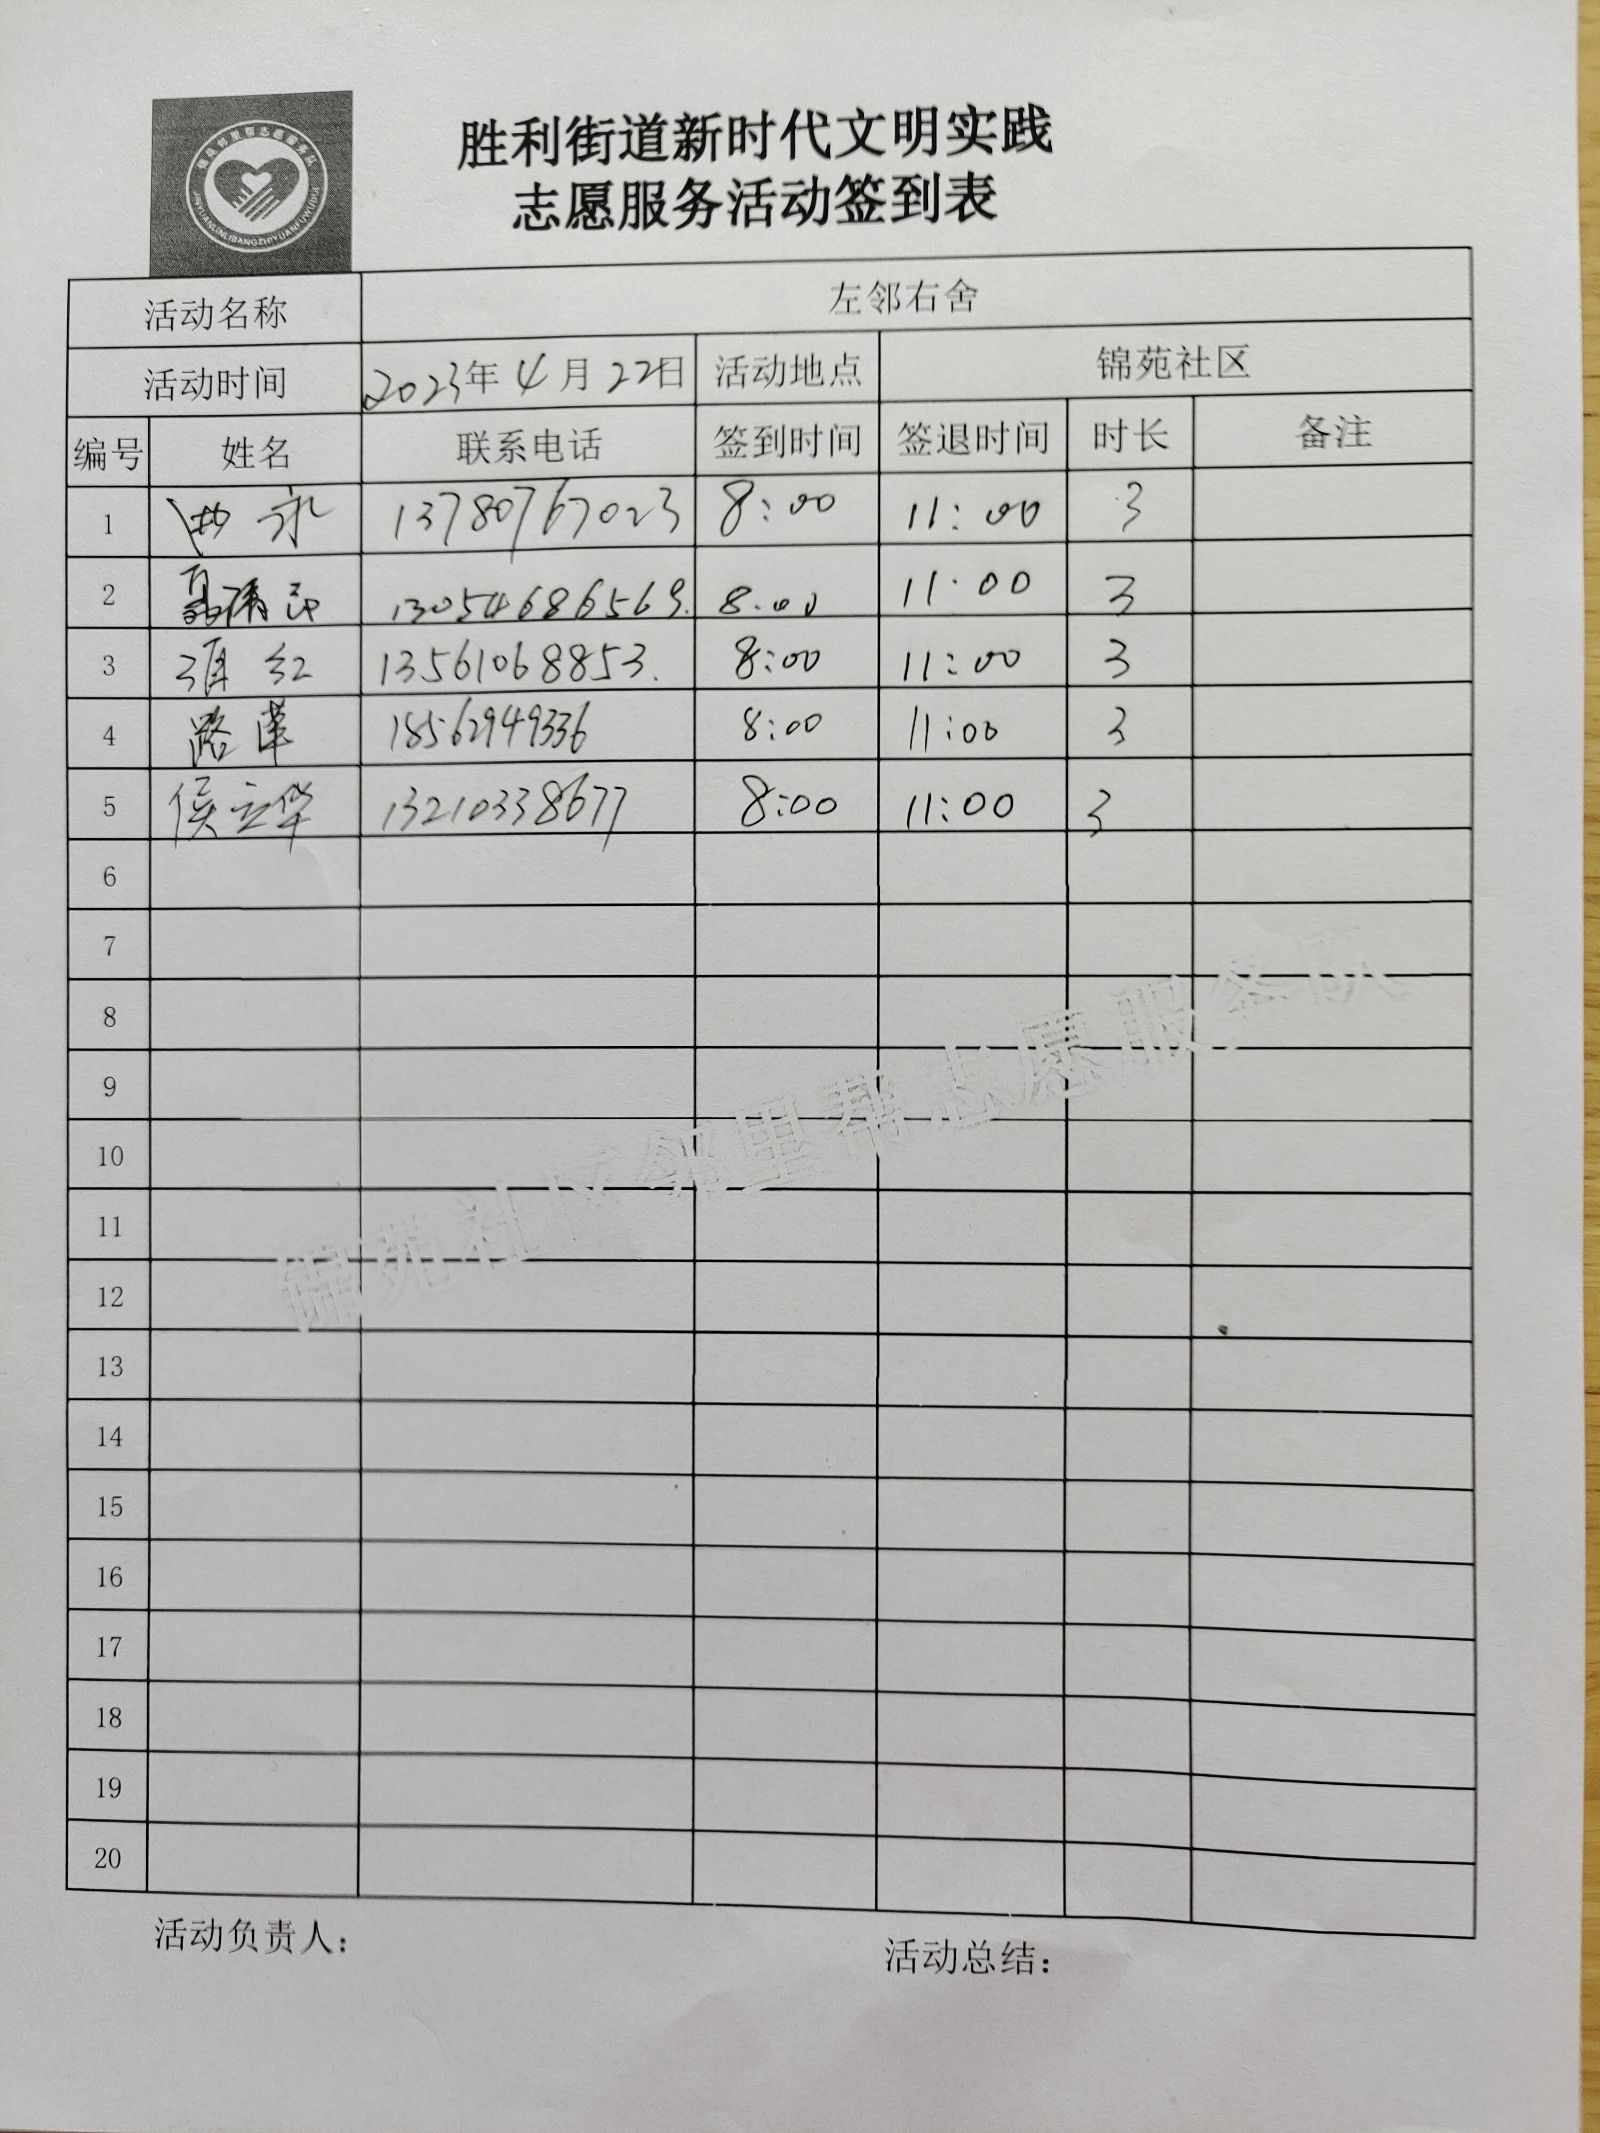 锦苑邻里帮志愿服务队
JINYUANLINLIBANGZHIYUANFUWUDUI
胜利街道新时代文明实践
志愿服务活动签到表
活动名称 左邻右舍
活动时间 2023年4月22日 活动地点 锦苑社区
编号 姓名 联系电话 签到时间 签退时间 时长 备注
1 13780767023 8:00 11:00 3
2 13054686569. 8:00 11:00 3
3 红 13561068853. 8:00 11:00 3
4 路莲 18562949336 8:00 11:00 3
5 侯立华 13210338677 8:00 11:00 3
6
7
8
9
10
11
12
13
14
15
16
17
18
19
20
锦苑社区邻里帮志愿服务队
活动负责人：
活动总结：